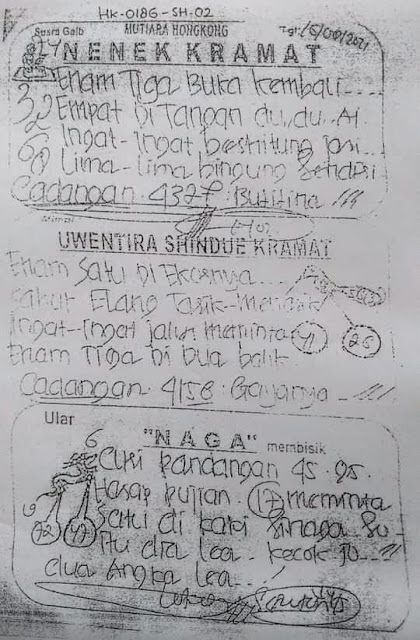 HK-0186-SH-02
Suara Gaib MUTIARA HONGKONG Tgl:
NENEK KRAMAT
Enam Tiga Buka Kembali....
Empat Di Tangan du..du.. A1
Ingat-Ingat berhitung jari..
Lima-Lima bingung Sendiri
Cadangan. 4327.
Mimpi
UWENTIRA SHINDUE KRAMAT
Enam Satu di Ekornya...
Sahut Elang Tarik-Menarik
Ingat-Ingat jalur meminta 41 26
Enam Tiga Di Dua balik
Cadangan. 4156. Gayanya
Ular
"NAGA" membisik
6
Curi pandangan 45.95.
Harap Pujian. 17 meminta
Satu di kaki
Itu dia Lea.. kecok
dua Angka Lea...